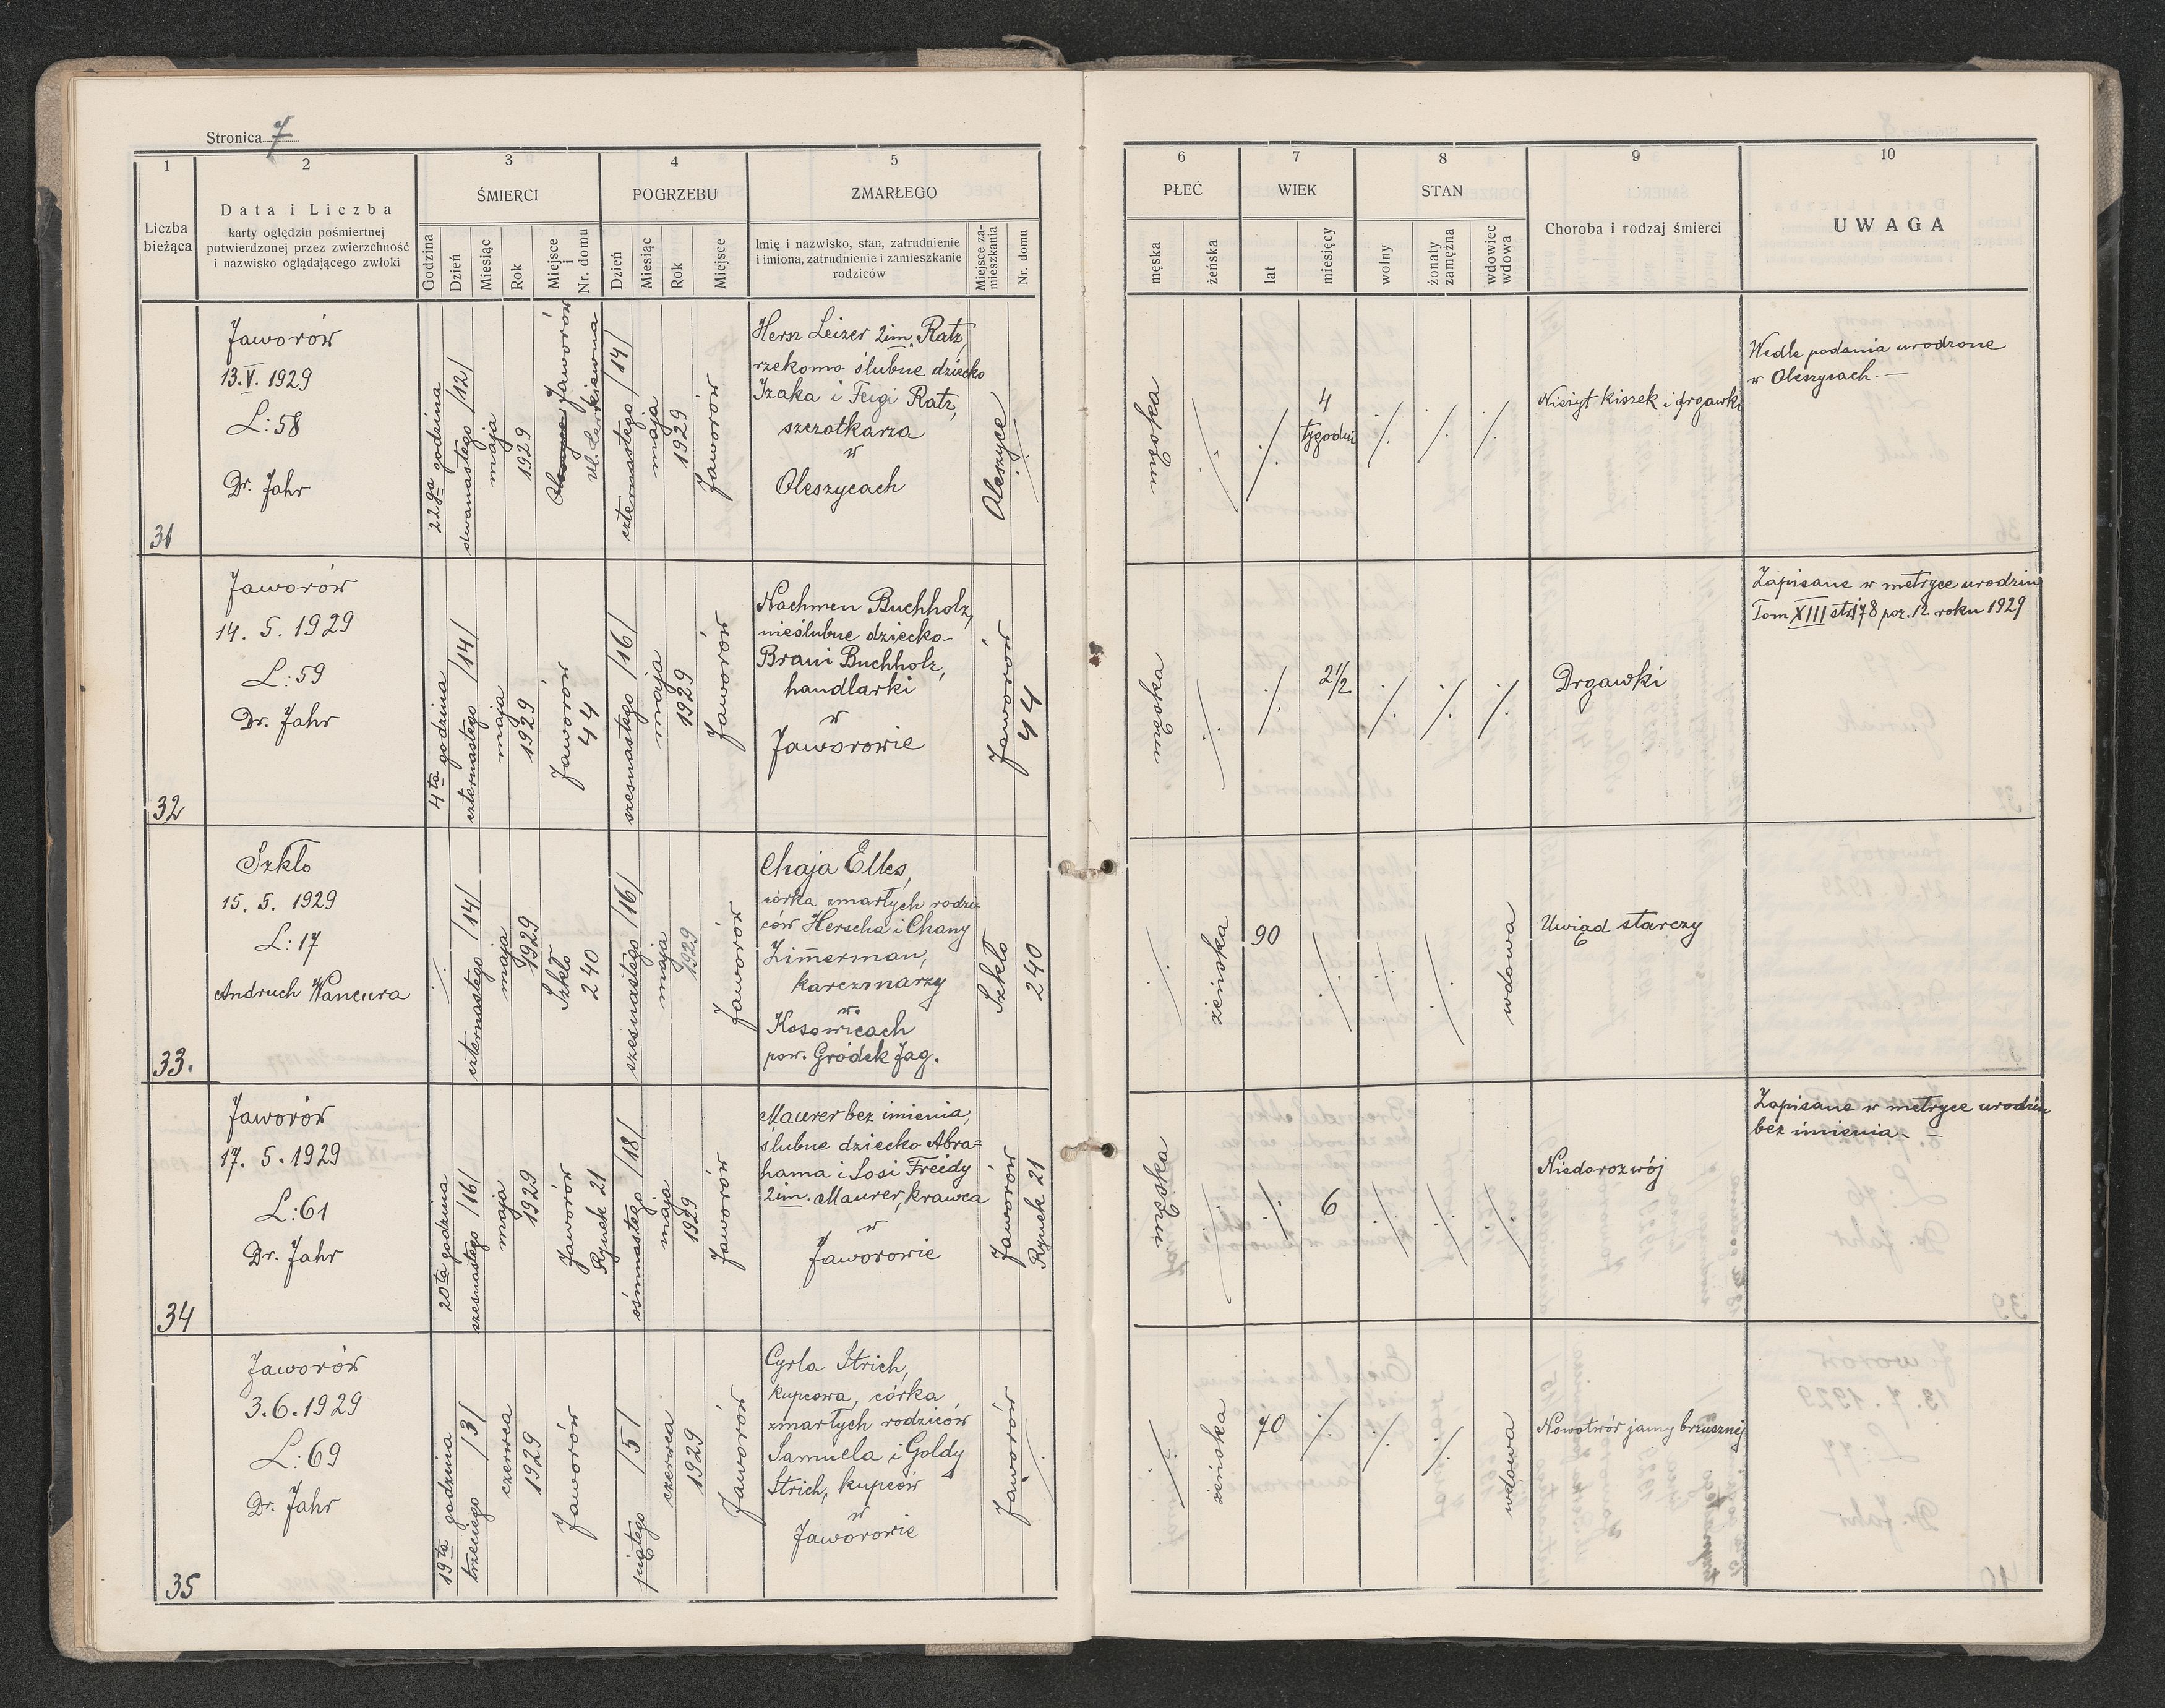 Stronica 7
1
2
3
4
5
6
7
8
9
10
Liczba
bieżąca
Data i Liczba
karty oględzin pośmiertnej
potwierdzonej przez zwierzchność
i nazwisko oglądającego zwłoki
ŚMIERCI
Godzina
Dzień
Miesiąc
Rok
Miejsce
i
Nr. domu
POGRZEBU
Dzień
Miesiąc
Rok
Miejsce
ZMARŁEGO
Imię i nazwisko, stan, zatrudnienie
i imiona, zatrudnienie i zamieszkanie
rodziców
Miejsce za-
mieszkania
Nr. domu
PŁEĆ
męska
żeńska
WIEK
lat
miesięcy
STAN
wolny
żonaty
zamężna
wdowiec
wdowa
Choroba i rodzaj śmierci
UWAGA
31
Jaworów
13.V.1929
L:58
Dr. Jahr
22ga godzina
dwunastego /12/
maja
1929
Jaworów
czternastego /14/
maja
1929
Jaworów
Hersz Leizer 2im. Ratz,
rzekomo ślubne dziecko
Izaka i Feigi Ratz,
szczotkarza
w
Oleszycach
Oleszyce
męska
4
tygodni
Nieżyt kiszek i drgawki
Wedle podania urodzone
w Oleszycach.—
32
Jaworów
14. 5. 1929
L:59
Dr. Jahr
4ta godzina
czternastego /14/
maja
1929
Jaworów
44
szesnastego /16/
maja
1929
Jaworów
Nachmen Buchholz,
nieślubne dziecko
Brani Buchholz,
handlarki
w
Jaworowie
Jaworów
44
męska
2 1/2
Drgawki
Zapisane w metryce urodzin
Tom XIII str 178 poz. 12 roku 1929
33.
Szkło
15. 5. 1929
L:17
Andruch Wancura
czternastego /14/
maja
1929
Szkło
240
szesnastego /16/
maja
1929
Jaworów
Chaja Elles,
córka zmarłych rodzi=
ców Herscha i Chany
Zim̄erman,
karczmarzy
w
Kosowicach
pow. Gródek Jag.
Szkło
240
żeńska
90
wdowa
Uwiąd starczy
34
Jaworów
17. 5. 1929
L:61
Dr. Jahr
20ta godzina
szesnastego /16/
maja
1929
Jaworów
Rynek 21
ośmnastego /18/
maja
1929
Jaworów
Maurer bez imienia,
ślubne dziecko Abra=
hama i Sosi Freidy
2im. Maurer, krawca
w
Jaworowie
Jaworów
Rynek 21
męska
6
Niedorozwój
Zapisane w metryce urodzin
bez imienia.—
35
Jaworów
3.6.1929
L:69
Dr. Jahr
19ta godzina
trzeciego /3/
czerwca
1929
Jaworów
piątego /5/
czerwca
1929
Jaworów
Cyrla Strich,
kupcowa, córka
zmarłych rodziców
Samuela i Goldy
Strich, kupców
w
Jaworowie
Jaworów
żeńska
70
wdowa
Nowotwór jamy brzusznej